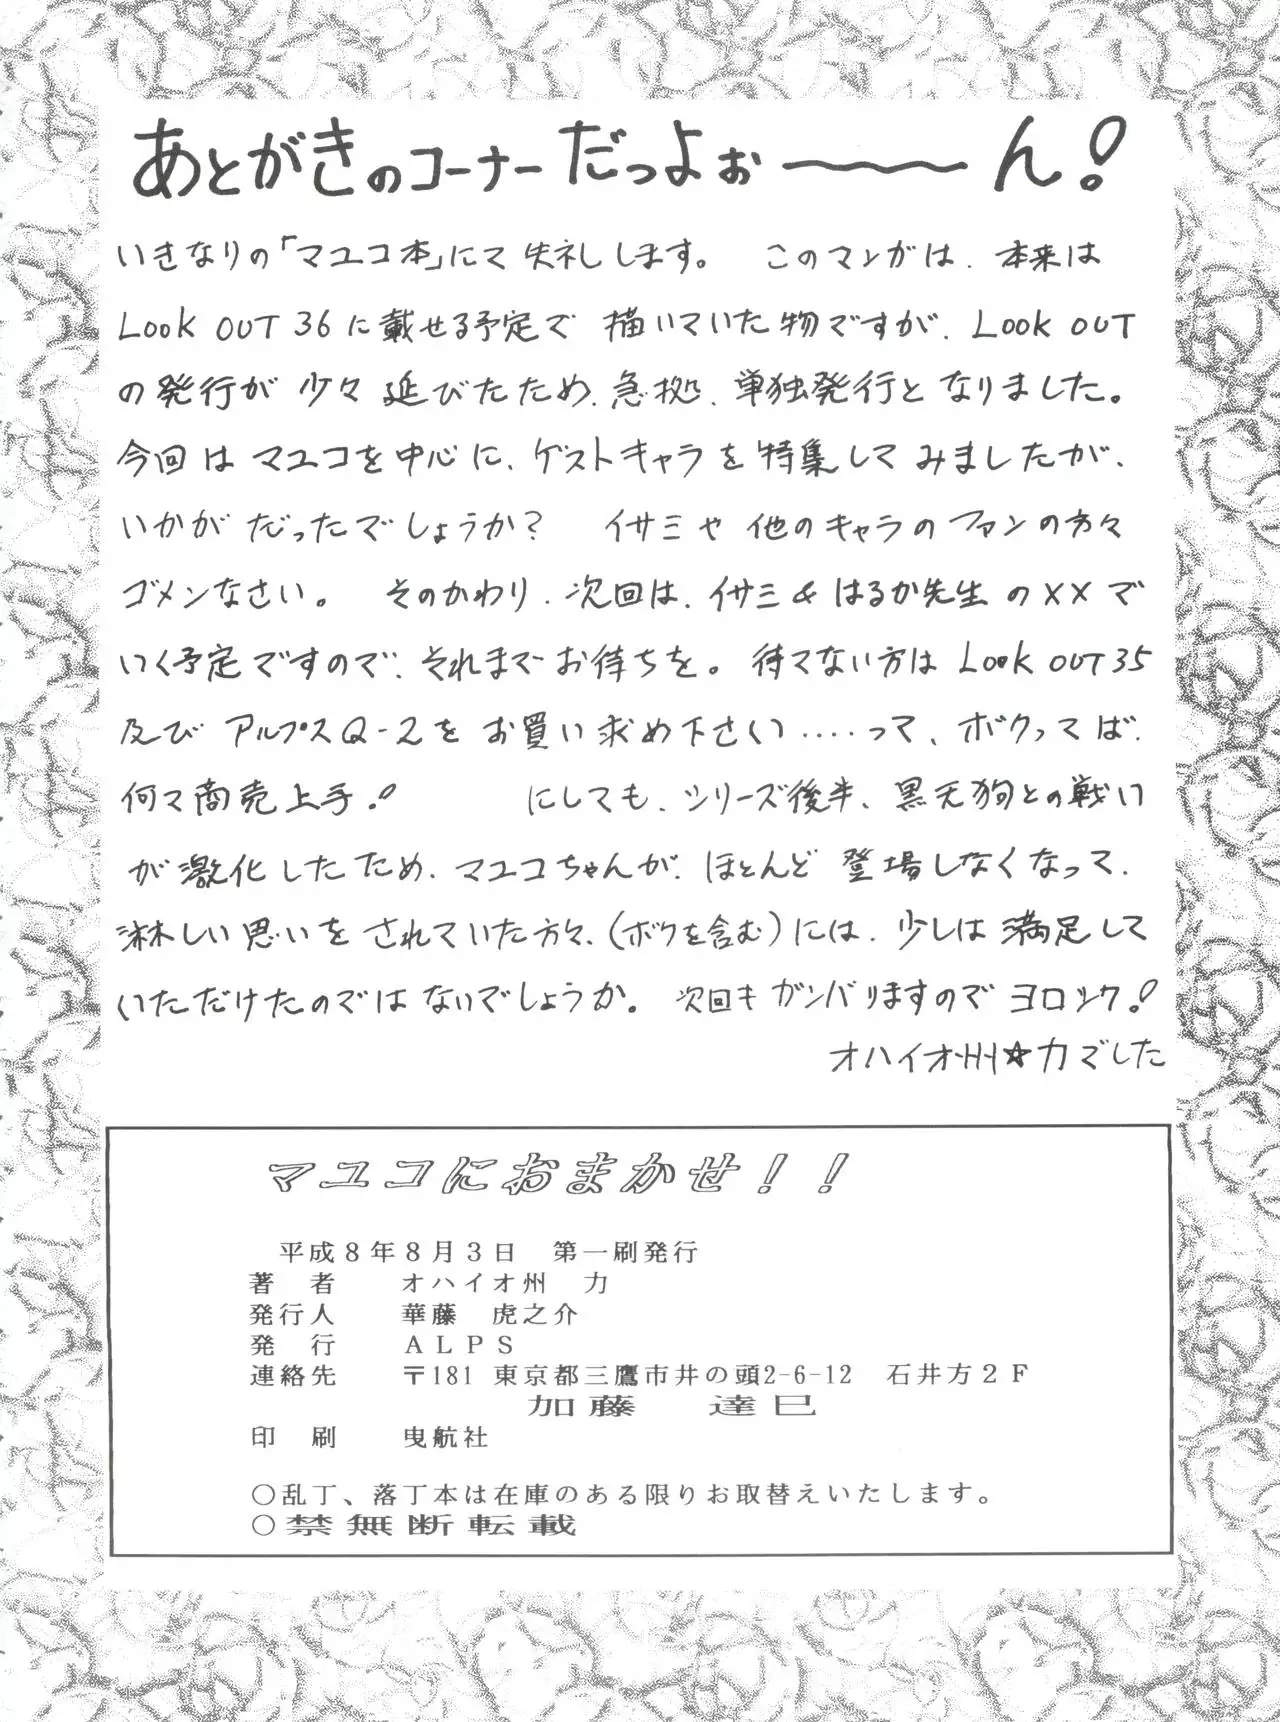 あとがきのコーナーだっよぉ〜〜ん!
いきなりの「マユコ本」にて失礼しします。 このマンガは、本来は
Look OUT 36に載せる予定で 描いていた物ですが、Look OUT
の発行が 少々 延びたため、急拠、単独発行となりました。
今回は マユコを中心に、ゲストキャラを特集してみましたが、
いかが だったでしょうか? イサミや 他のキャラのファンの方々
ゴメンなさい。 そのかわり、次回は、イサミ&はるか先生の××で
いく予定ですので、それまでお待ちを。待てない方は Look OUT35
及び アルプスQ-2を お買い求め下さい‥‥って、ボクってば、
何て商売上手! にしても、シリーズ後半、黒天狗との戦い
が 激化したため、マユコちゃんが、ほとんど 登場しなくなって、
淋しい思いを されていた方々、(ボクを含む)には、少しは満足して
いただけたのでは ないでしょうか。 次回も ガンバりますので ヨロシク!
オハイオ州☆力でした
マユコにおまかせ!!
平成8年8月3日 第一刷発行
著 者 オハイオ州 力
発行人 華藤 虎之介
発 行 ALPS
連絡先 〒181 東京都三鷹市井の頭2-6-12 石井方2F
加藤 達巳
印 刷 曳航社
○乱丁、落丁本は在庫のある限りお取替えいたします。
○禁無断転載